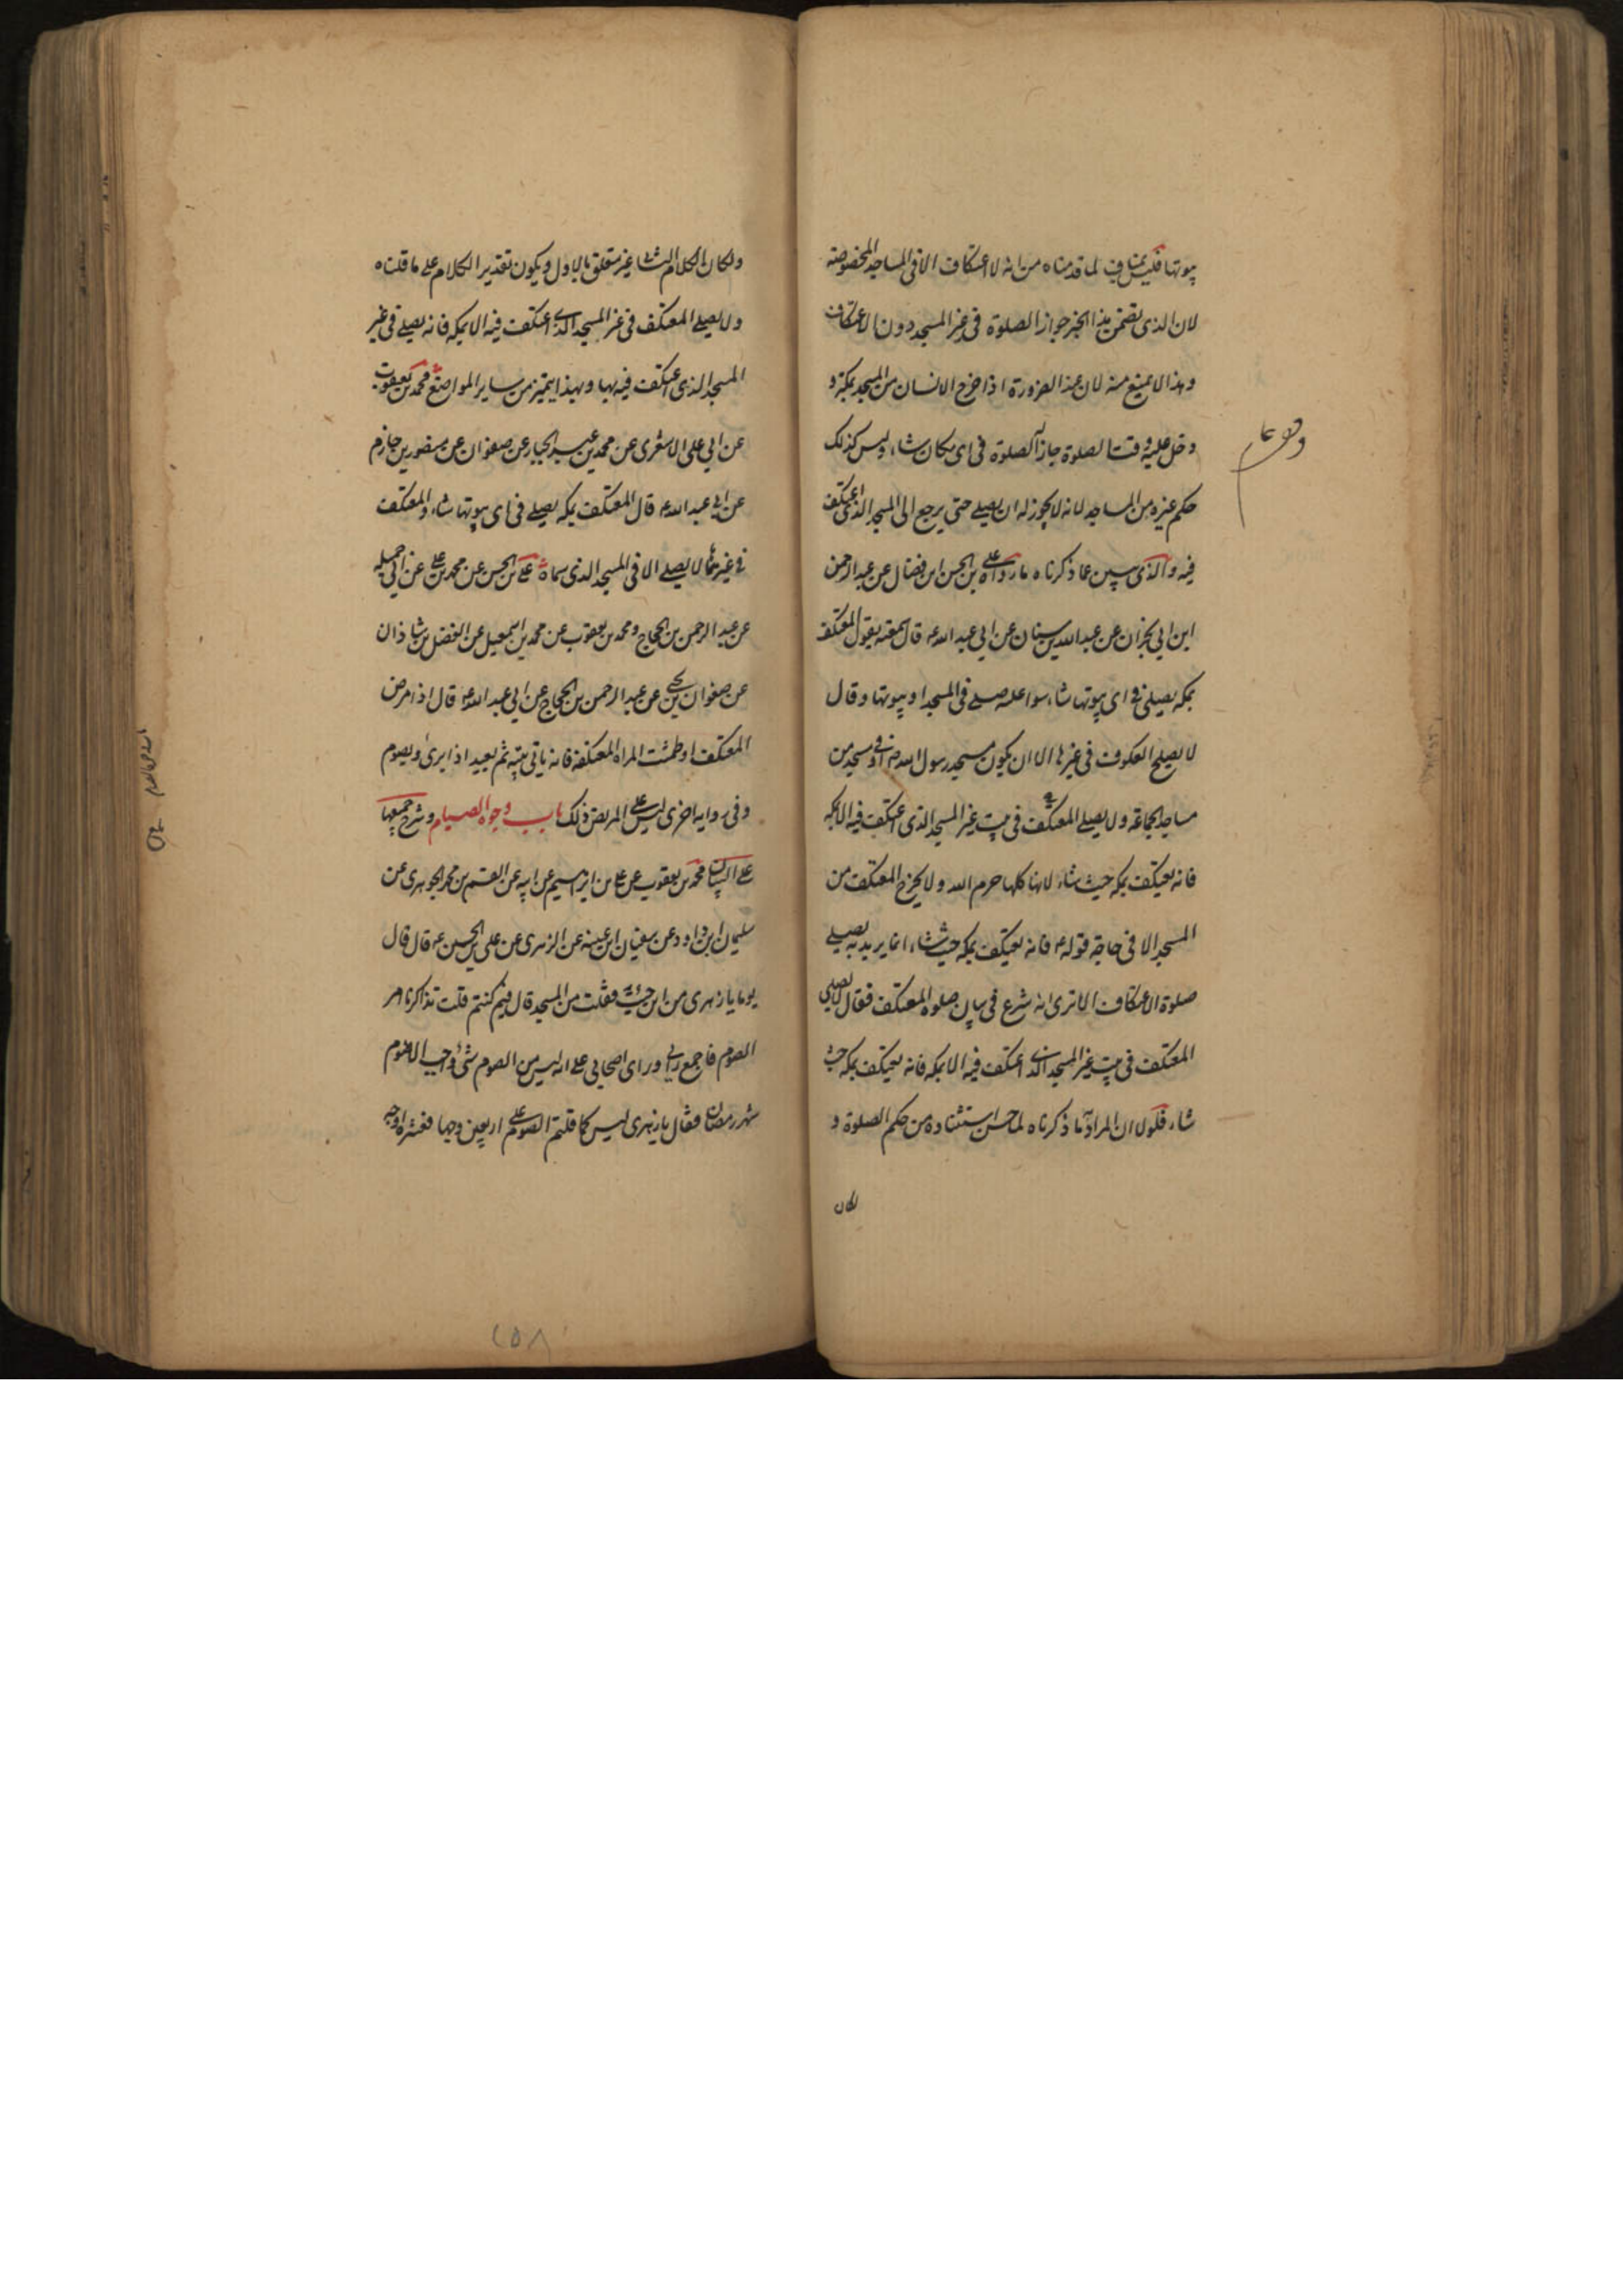 بيوتها فليس بمناف لما قدمناه من انه لا اعتكاف الا في المساجد المخصوصة
لان الذي تضمن هذا الخبر جواز الصلوة في غير المسجد دون الاعتكاف
وهذا لا يمتنع منه لان عند الضرورة اذا خرج الانسان من المسجد بمكة و
دخل عليه وقت الصلوة جاز له الصلوة في اي مكان شاء وليس كذلك
حكم غيره من المساجد لانه لا يجوز له ان يصلي حتى يرجع الى المسجد الذي اعتكف
فيه والذي يبين عما ذكرناه ما رواه علي بن الحسن ابن فضال عن عبد الرحمن
ابن ابي نجران عن عبد الله بن سنان عن ابي عبد الله ع قال سمعته يقول المعتكف
بمكة يصلي في اي بيوتها شاء سواء عليه صلى في المسجد او بيوتها وقال
لا يصلح العكوف في غيرها الا ان يكون مسجد رسول الله ص او في مسجد من
مساجد الجماعة ولا يصلي المعتكف في بيت غير المسجد الذي اعتكف فيه الا بمكة
فانه يعتكف بمكة حيث شاء لانها كلها حرم الله ولا يخرج المعتكف من
المسجد الا في حاجة قوله ع فانه يعتكف بمكة حيث شاء انما يريد به يصلي
صلوة الاعتكاف الا ترى انه شرع في بيان صلوة المعتكف فقال لا يصلي
المعتكف في بيت غير المسجد الذي اعتكف فيه الا بمكة فانه يعتكف بمكة حيث
شاء فلولا ان المراد ما ذكرناه لما حسن استثناؤه من حكم الصلوة و
لكان
ولكان الكلام الثاني غير متعلق بالاول ويكون تقدير الكلام على ما قلناه
ولا يصلي المعتكف في غير المسجد الذي اعتكف فيه الا بمكة فانه يصلي في غير
المسجد الذي اعتكف فيه بها وبهذا يتميز من ساير المواضع محمد بن يعقوب
عن ابي علي الاشعري عن محمد بن عبد الجبار عن صفوان عن منصور بن حازم
عن ابي عبد الله ع قال المعتكف بمكة يصلي في اي بيوتها شاء والمعتكف
في غيرها لا يصلي الا في المسجد الذي سماه علي بن الحسن عن محمد بن علي عن ابي جميله
عن عبد الرحمن بن الحجاج ومحمد بن يعقوب عن محمد بن اسمعيل عن الفضل بن شاذان
عن صفوان بن يحيى عن عبد الرحمن بن الحجاج عن ابي عبد الله ع قال اذا مرض
المعتكف او طمثت المراه المعتكفة فانه ياتي بيته ثم يعيد اذا برئ ويصوم
وفي روايه اخرى ليس على المريض ذلك باب وجوه الصيام وشرح جميعها
على البيان محمد بن يعقوب عن علي بن ابرهيم عن ابيه عن القسم بن محمد الجوهري عن
سليمان ابن داود عن سفيان ابن عيينه عن الزهري عن علي بن الحسين ع قال قال
يوما يا زهري من اين جئت فقلت من المسجد قال فيم كنتم قلت تذاكرنا امر
الصوم فاجمع رايي وراى اصحابي على انه ليس من الصوم شئ واجب الا صوم
شهر رمضان فقال يا زهري ليس كما قلتم الصوم على اربعين وجها فعشره اوجه
٢٥٨